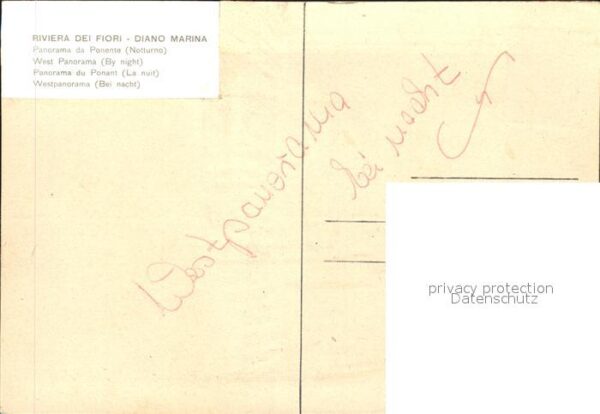 RIVIERA DEI FIORI - DIANO MARINA
Panorama da Ponente (Notturno)
West Panorama (By night)
Panorama du Ponant (La nuit)
Westpanorama (Bei nacht)
Westpanorama
bei nacht
privacy protection
Datenschutz